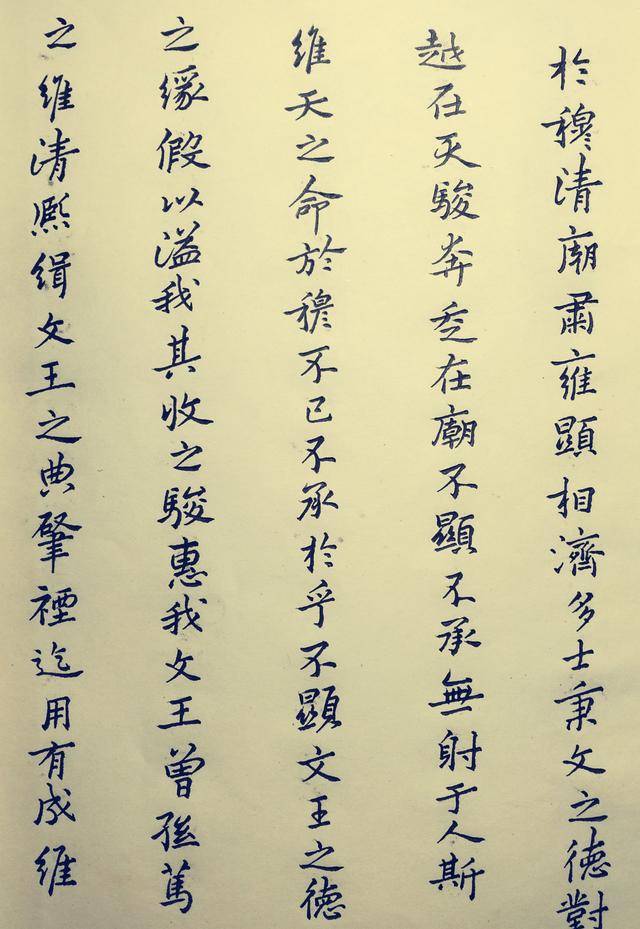 於穆清廟肅雍顯相濟多士秉文之德對
越在天駿奔走在廟不顯不承無射于人斯
維天之命於穆不已不承於乎不顯文王之德
之緣假以溢我其收之駿惠我文王曾孫篤
之維清熙緝文王之典肇禋迄用有成維